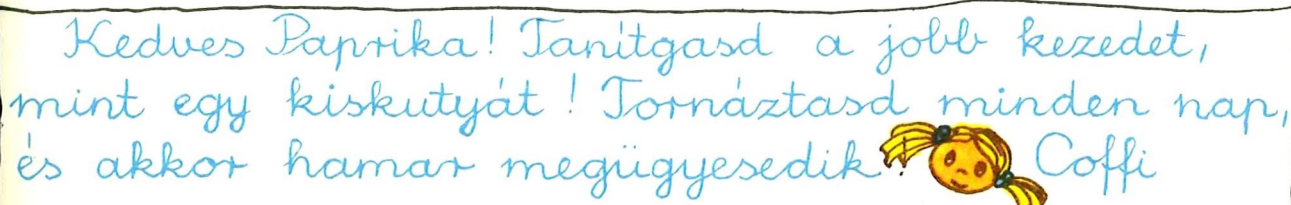 Kedves Paprika! Tanítgasd a jobb kezedet,
mint egy kiskutyát! Tornáztasd minden nap,
és akkor hamar megügyesedik! Coffi